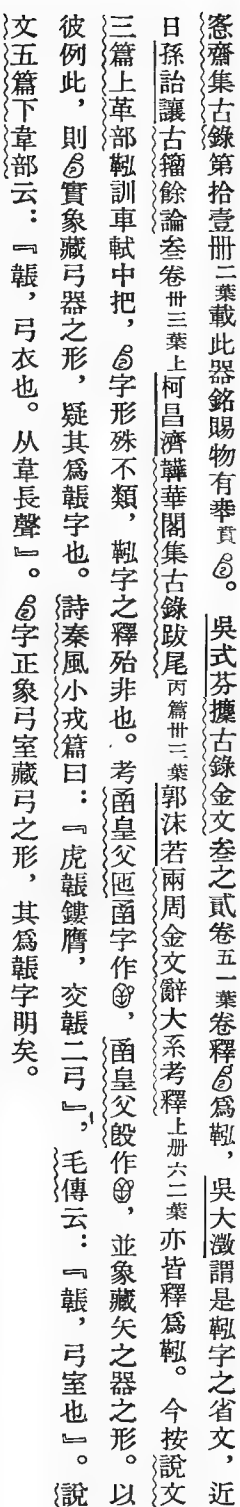 愙齋集古錄第拾壹册二葉載此器銘賜物有𠦪賁。吳式芬攈古錄金文叁之貳卷五一葉卷釋爲𩊠，吳大澂謂是𩊠字之省文，近
日孫詒讓古籀餘論叁卷卅三葉上柯昌濟韡華閣集古錄跋尾丙篇卅三葉郭沫若兩周金文辭大系考釋上册六二葉亦皆釋爲𩊠。今按說文
三篇上革部𩊠訓車軾中把，字形殊不類，𩊠字之釋殆非也。考圅皇父匜圅字作，圅皇父𣪘作，並象藏矢之器之形。以
彼例此，則實象藏弓器之形，疑其爲韔字也。詩秦風小戎篇曰：『虎韔鏤膺，交韔二弓』，毛傳云：『韔，弓室也』。說
文五篇下韋部云：『韔，弓衣也。从韋長聲』。字正象弓室藏弓之形，其爲韔字明矣。